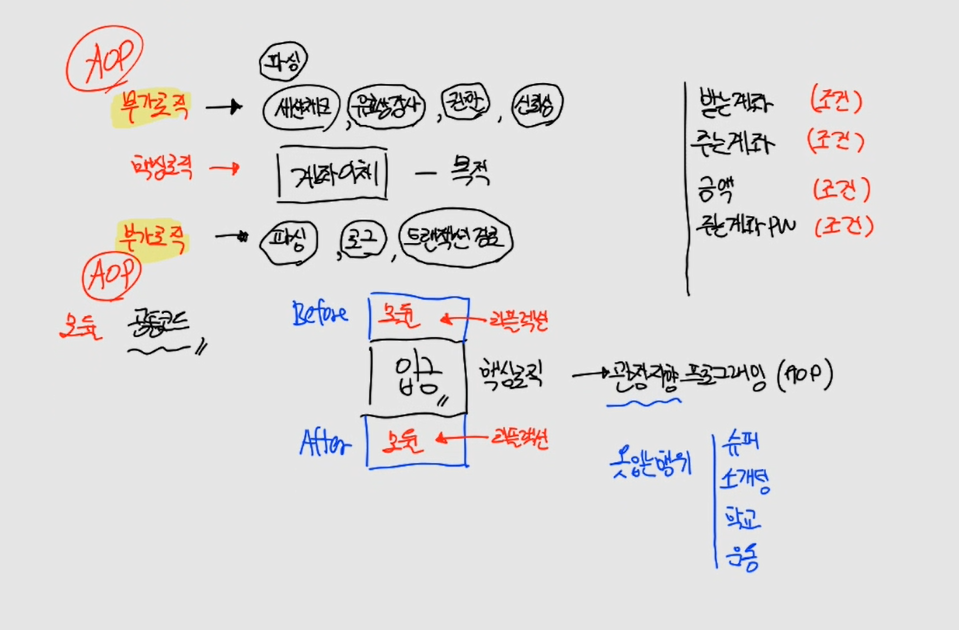 AOP
파싱
부가로직 → 세션체크, 유효성검사, 권한, 신뢰성
핵심로직 → 계좌이체 - 목적
부가로직 → 파싱, 로그, 트랜잭션 검토
AOP
모듈 공통코드
받는계좌 (조건)
주는계좌 (조건)
금액 (조건)
주는계좌PW (조건)
Before 모듈 ← 리플렉션
입금 핵심로직 → 관점지향 프로그래밍 (AOP)
After 모듈 ← 리플렉션
옷입는행위
슈퍼
소개팅
학교
운동